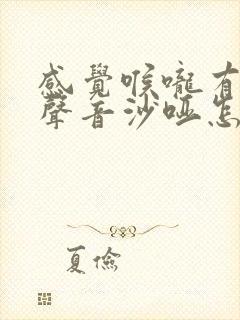 感覺喉嚨有
聲音沙啞怎
夏儉